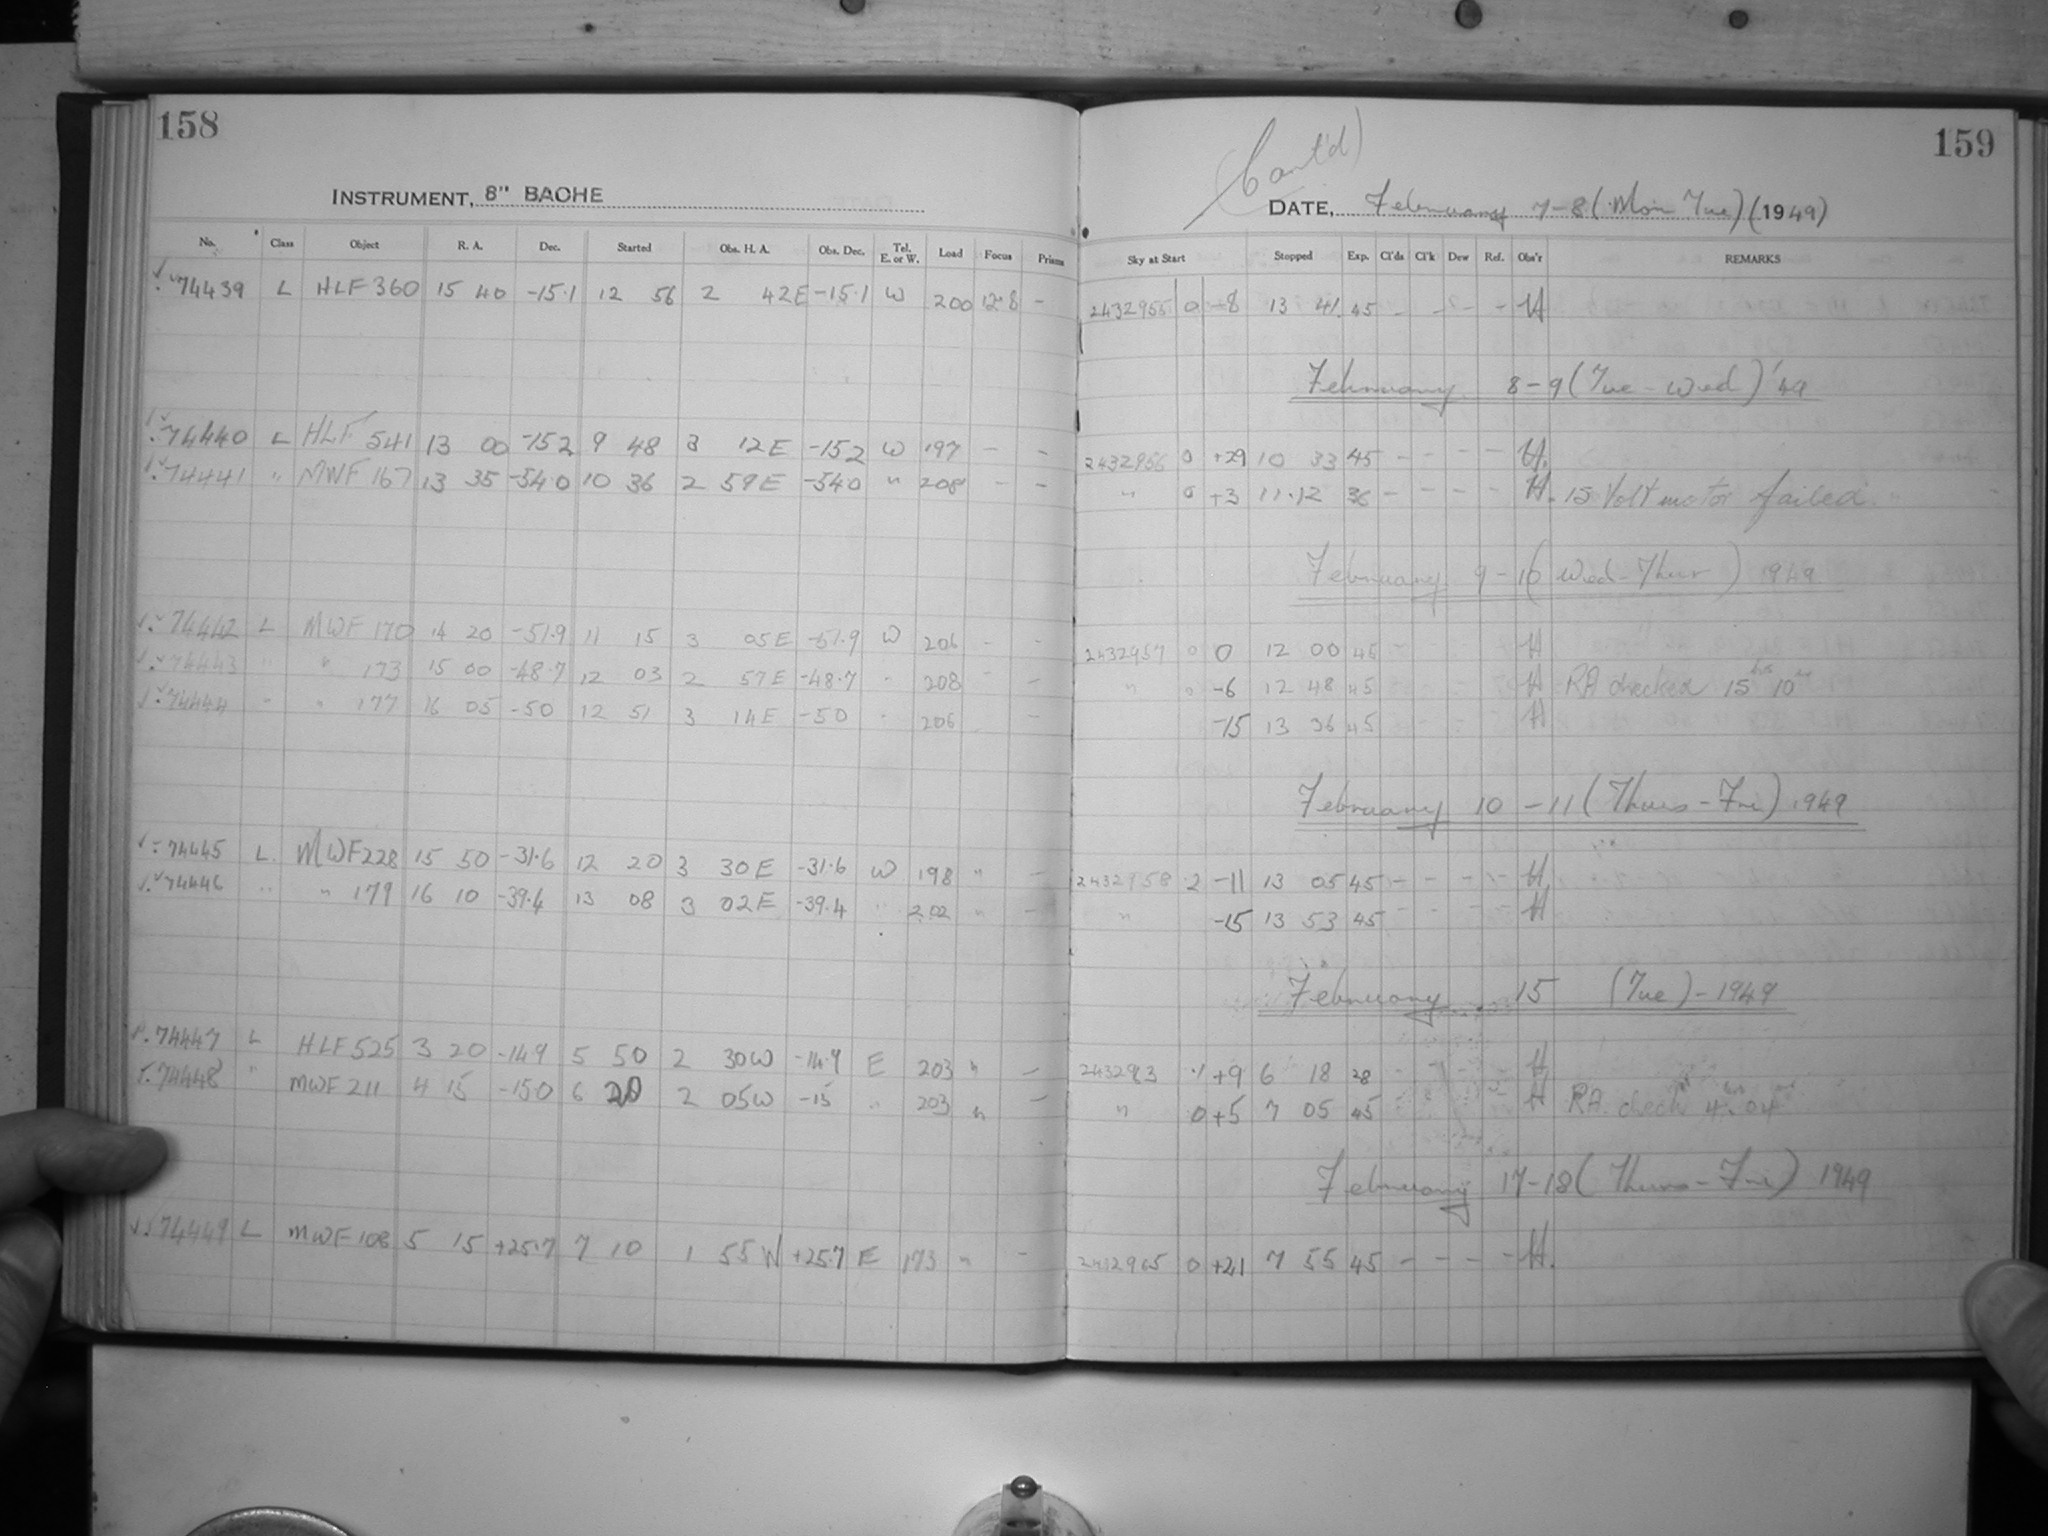 158
159
(Cont'd)
INSTRUMENT, 8" BACHE
DATE, February 7-8 (Mon Tue) (1949)
No. Class Object R. A. Dec. Started Obs. H. A. Obs. Dec. Tel. E. or W. Load Focus Prisms Sky at Start Stopped Exp. Cl'ds Cl'k Dew Ref. Obs'r REMARKS
74439 L HLF 360 15 40 -15.1 12 56 2 42E -15.1 W 200 12.8 - 2432955 0 +8 13 41 45 - - - - H
February 8-9 (Tue - Wed) '49
74440 L HLF 541 13 00 -152 9 48 3 12E -152 W 197 - - 2432956 0 +29 10 33 45 - - - - H.
74441 " MWF 167 13 35 -54.0 10 36 2 59E -540 " 208 - - " 0 +3 11.12 36 - - - - H. 15 Volt motor failed.
February 9-10 (Wed-Thur) 1949
74442 L MWF 170 14 20 -51.9 11 15 3 05E -51.9 W 206 - - 2432957 0 0 12 00 45 H
74443 " " 173 15 00 -48.7 12 03 2 57E -48.7 " 208 - - " 0 -6 12 48 45 H RA checked 15hrs 10m
74444 " " 177 16 05 -50 12 51 3 14E -50 " 206 - -15 13 36 45 H
February 10-11 (Thurs - Fri) 1949
74445 L. MWF 228 15 50 -31.6 12 20 3 30E -31.6 W 198 " - 2432958 2 -11 13 05 45 - - - - H
74446 " " 179 16 10 -39.4 13 08 3 02E -39.4 " 202 " - " -15 13 53 45 H
February 15 (Tue) - 1949
74447 L HLF 525 3 20 -149 5 50 2 30W -14.9 E 203 " - 243293 +9 6 18 28 H
74448 " MWF 211 4 15 -150 6 20 2 05W -15 " 203 " - " 0 +5 7 05 45 H RA check 4hrs 04m
February 17-18 (Thurs - Fri) 1949
74449 L MWF 108 5 15 +25.7 7 10 1 55W +25.7 E 173 " - 2432965 0 +21 7 55 45 - - - - H.